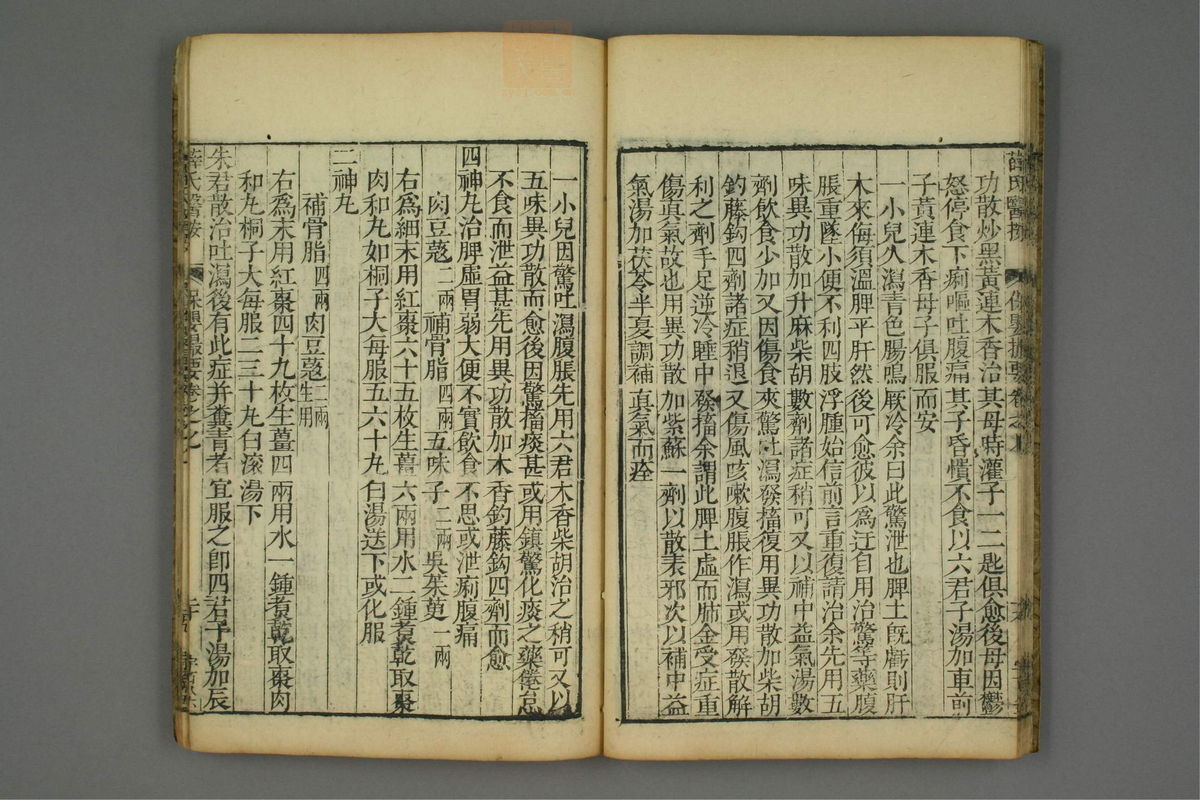 薛氏醫按 保嬰撮要卷之七
功散炒黑黃連木香治其母時灌子一二匙俱愈後母因鬱
怒停食下痢嘔吐腹痛其子昏憒不食以六君子湯加車前
子黃連木香母子俱服而安
一小兒久瀉青色腸鳴厥冷余曰此驚泄也脾土既虧則肝
木來侮須溫脾平肝然後可愈彼以為迂自用治驚等藥腹
脹重墜小便不利四肢浮腫始信前言重復請治余先用五
味異功散加升麻柴胡數劑諸症稍可又以補中益氣湯數
劑飲食少加又因傷食夾驚吐瀉發搐復用異功散加柴胡
釣藤鈎四劑諸症稍退又傷風咳嗽腹脹作瀉或用發散解
利之劑手足逆冷睡中發搐余謂此脾土虛而肺金受症重
傷真氣故也用異功散加紫蘇一劑以散表邪次以補中益
氣湯加茯苓半夏調補真氣而痊
一小兒因驚吐瀉腹脹先用六君木香柴胡治之稍可又以
五味異功散而愈後因驚搐痰甚或用鎮驚化痰之藥倦怠
不食而泄益甚先用異功散加木香釣藤鈎四劑而愈
四神丸治脾虛胃弱大便不實飲食不思或泄痢腹痛
肉豆蔻二兩 補骨脂四兩 五味子二兩 吳茱萸一兩
右為細末用紅棗六十五枚生薑六兩用水二鍾煮乾取棗
肉和丸如桐子大每服五六十丸白湯送下或化服
二神丸
補骨脂四兩 肉豆蔻二兩生用
右為末用紅棗四十九枚生薑四兩用水一鍾煮乾取棗肉
和丸桐子大每服二三十丸白滾湯下
朱君散治吐瀉後有此症并糞青者宜服之卽四君子湯加辰
薛氏醫按 保嬰撮要卷之七